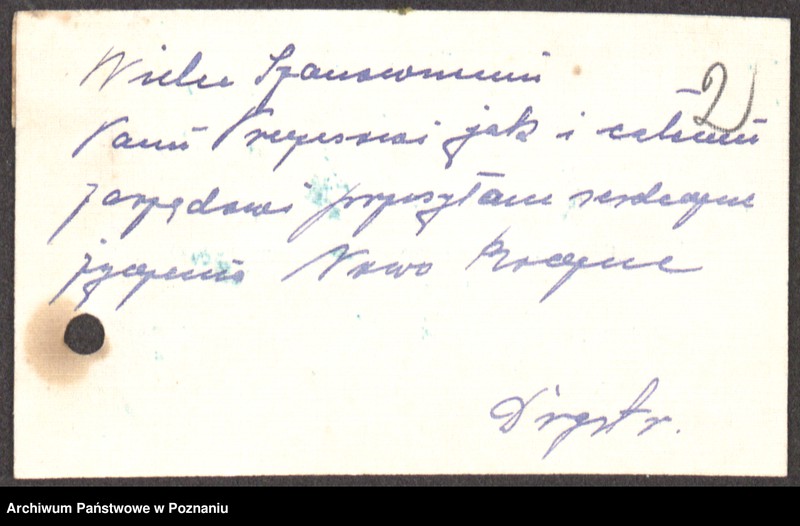 Wielce Szanownemu
2
Panu Prezesowi jak i całemu
zarządowi przesyłam serdeczne
życzenia Nowo Roczne
Archiwum Państwowe w Poznaniu